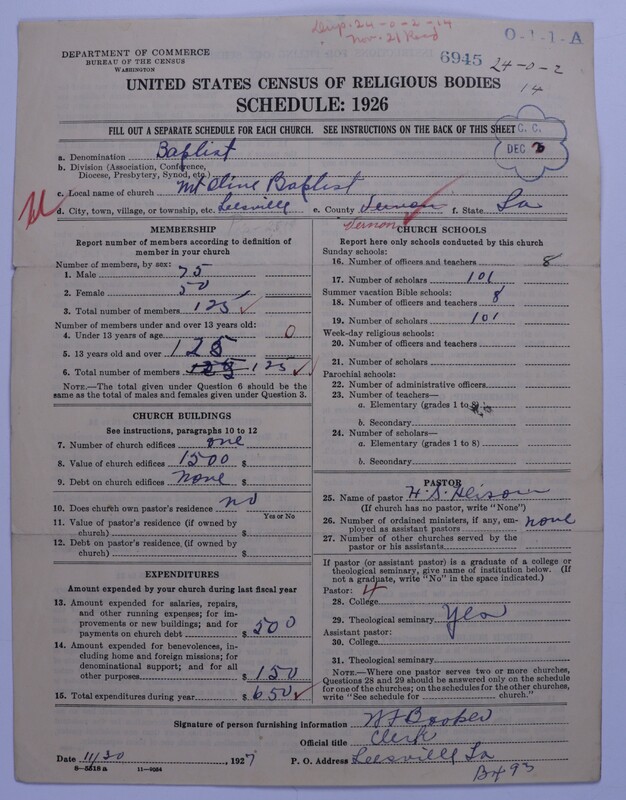 Dup. 24-0-2-14
Nov. 21
O-1-1-A
DEPARTMENT OF COMMERCE
BUREAU OF THE CENSUS
WASHINGTON
6945
24-0-2
14
UNITED STATES CENSUS OF RELIGIOUS BODIES
SCHEDULE: 1926
FILL OUT A SEPARATE SCHEDULE FOR EACH CHURCH. SEE INSTRUCTIONS ON THE BACK OF THIS SHEET
C. C.
DEC
a. Denomination Baptist
b. Division (Association, Conference,
Diocese, Presbytery, Synod, etc.)
c. Local name of church Mt Olive Baptist
d. City, town, village, or township, etc. Leesville e. County Vernon f. State La
Vernon
MEMBERSHIP
Report number of members according to definition of
member in your church
Number of members, by sex:
1. Male 75
2. Female 50
3. Total number of members 125
Number of members under and over 13 years old:
4. Under 13 years of age 0
5. 13 years old and over 125
6. Total number of members 125
NOTE.—The total given under Question 6 should be
same as the total of males and females given under Question 3.
CHURCH BUILDINGS
See instructions, paragraphs 10 to 12
7. Number of church edifices one
8. Value of church edifices 1500 $
9. Debt on church edifices none $
10. Does church own pastor's residence no
Yes or No
11. Value of pastor's residence (if owned by
church) $
12. Debt on pastor's residence (if owned by
church) $
EXPENDITURES
Amount expended by your church during last fiscal year
13. Amount expended for salaries, repairs,
and other running expenses; for im-
provements or new buildings; and for
payments on church debt $ 500
14. Amount expended for benevolences, in-
cluding home and foreign missions; for
denominational support; and for all
other purposes $ 150
15. Total expenditures during year $ 650
CHURCH SCHOOLS
Report here only schools conducted by this church
Sunday schools:
16. Number of officers and teachers 8
17. Number of scholars 101
Summer vacation Bible schools:
18. Number of officers and teachers 8
19. Number of scholars 101
Week-day religious schools:
20. Number of officers and teachers
21. Number of scholars
Parochial schools:
22. Number of administrative officers
23. Number of teachers—
a. Elementary (grades 1 to 8)
b. Secondary
24. Number of scholars—
a. Elementary (grades 1 to 8)
b. Secondary
PASTOR
25. Name of pastor H. S.
(If church has no pastor, write "None")
26. Number of ordained ministers, if any, em-
ployed as assistant pastors none
27. Number of other churches served by the
pastor or his assistants
If pastor (or assistant pastor) is a graduate of a college or
theological seminary, give name of institution below. (If
not a graduate, write "No" in the space indicated.)
Pastor: 4
28. College
29. Theological seminary Yes
Assistant pastor:
30. College
31. Theological seminary
NOTE.—Where one pastor serves two or more churches,
Questions 28 and 29 should be answered only on the schedule
for one of the churches; on the schedules for the other churches,
write "See schedule for church."
Signature of person furnishing information W J Booker
Official title Clerk
Date 11/30, 1927 P. O. Address Leesville La
8—5518 a 11—9024
Bx 93